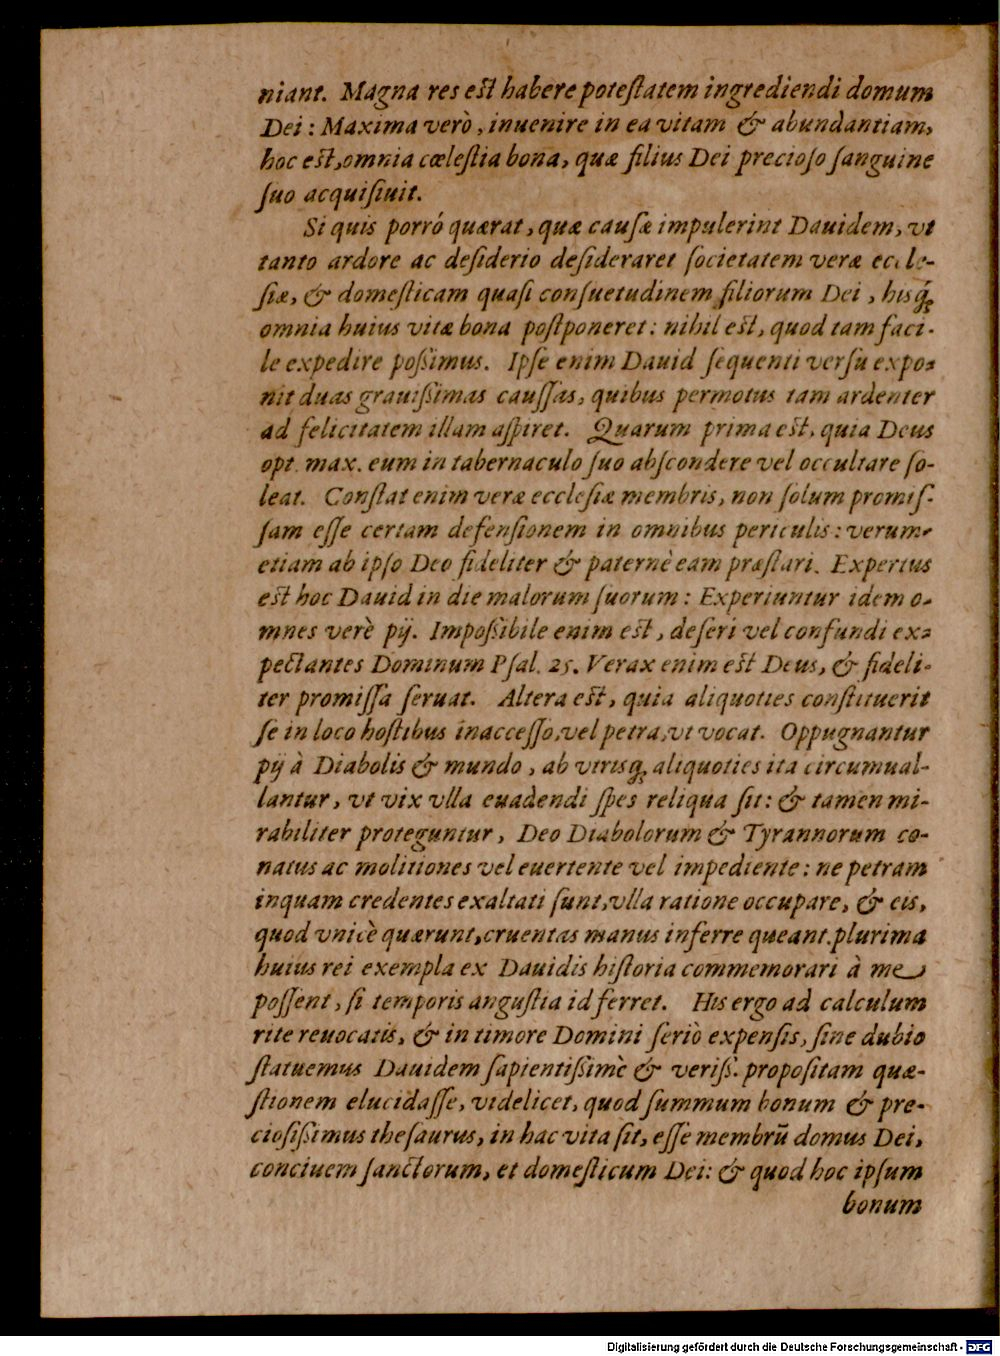 niant. Magna res est habere poteſtatem ingrediendi domum
Dei: Maxima verò, inuenire in ea vitam & abundantiam,
hoc est, omnia cœleſtia bona, quæ filius Dei precioſo ſanguine
ſuo acquiſiuit.
Si quis porró quærat, quæ cauſæ impulerint Dauidem, vt
tanto ardore ac deſiderio deſideraret ſocietatem veræ eccle-
ſiæ, & domeſticam quaſi conſuetudinem filiorum Dei, hisq́;
omnia huius vitæ bona poſtponeret: nihil est, quod tam faci-
le expedire poſsimus. Ipſe enim Dauid ſequenti verſu expo-
nit duas grauiſsimas cauſſas, quibus permotus tam ardenter
ad felicitatem illam aſpiret. Quarum prima est, quia Deus
opt. max. eum in tabernaculo ſuo abſcondere vel occultare ſo-
leat. Conſtat enim veræ eccleſiæ membris, non ſolum promiſ-
ſam eſſe certam defenſionem in omnibus periculis: verum-
etiam ab ipſo Deo fideliter & paternè eam præſtari. Expertus
est hoc Dauid in die malorum ſuorum: Experiuntur idem o-
mnes verè pij. Impoſsibile enim est, deſeri vel confundi ex-
pectantes Dominum Pſal. 25. Verax enim est Deus, & fideli-
ter promiſſa ſeruat. Altera est, quia aliquoties conſtituerit
ſe in loco hoſtibus inacceſſo, vel petra, vt vocat. Oppugnantur
pij à Diabolis & mundo, ab vtrisq; aliquoties ita circumual-
lantur, vt vix vlla euadendi ſpes reliqua ſit: & tamen mi-
rabiliter proteguntur, Deo Diabolorum & Tyrannorum co-
natus ac molitiones vel euertente vel impediente: ne petram
inquam credentes exaltati ſunt, vlla ratione occupare, & eis,
quod vnicè quærunt, cruentas manus inferre queant. plurima
huius rei exempla ex Dauidis hiſtoria commemorari à me
poſſent, ſi temporis anguſtia id ferret. His ergo ad calculum
rite reuocatis, & in timore Domini ſeriò expenſis, ſine dubio
ſtatuemus Dauidem ſapientiſsimè & veriſs. propoſitam quæ-
ſtionem elucidaſſe, videlicet, quod ſummum bonum & pre-
cioſiſsimus theſaurus, in hac vita ſit, eſſe membrū domus Dei,
conciuem ſanctorum, et domeſticum Dei: & quod hoc ipſum
bonum
Digitalisierung gefördert durch die Deutsche Forschungsgemeinschaft - DFG